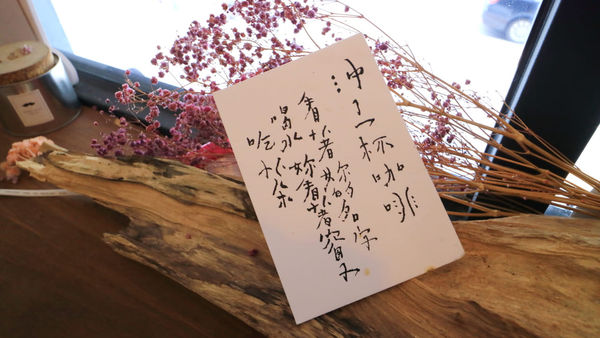 沖了一杯咖啡
看著你的名字
喝水 妳看著窗子
吃水